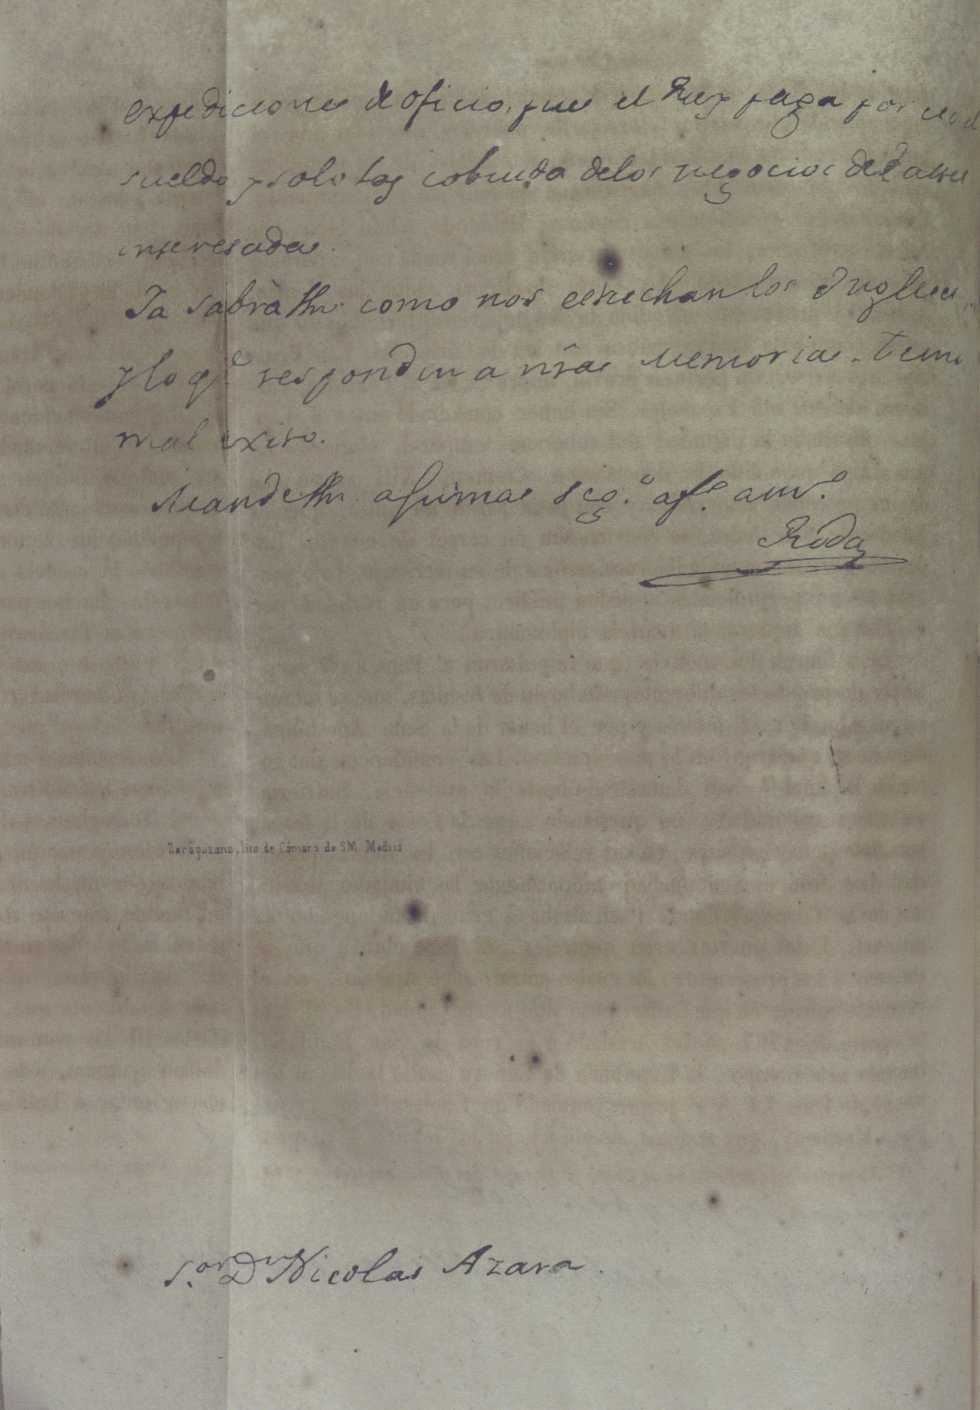 expediciones de oficio, que el Rey paga por
sueldo y solo las cobrudo delos negocios de
interesadas.
Ya sabrà Vm. como nos estrechan los Ingleses,
y lo q.e responden a nr̃as Memorias. temo
mal exito.
Mande Vm. a su mas seg.o af.o am.o
Roda
Zaragozano, lito de Cámara de S.M. Madrid
S.or D.n Nicolas Azara.